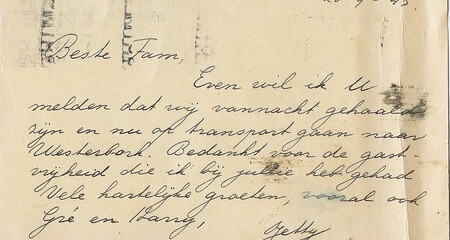 Beste Fam,
Even wil ik U
melden dat wij vannacht gehaald
zijn en nu op transport gaan naar
Westerbork. Bedankt voor de gast-
vrijheid die ik bij jullie heb gehad
Vele hartelijke groeten, vooral ook
Gré en
Jetty